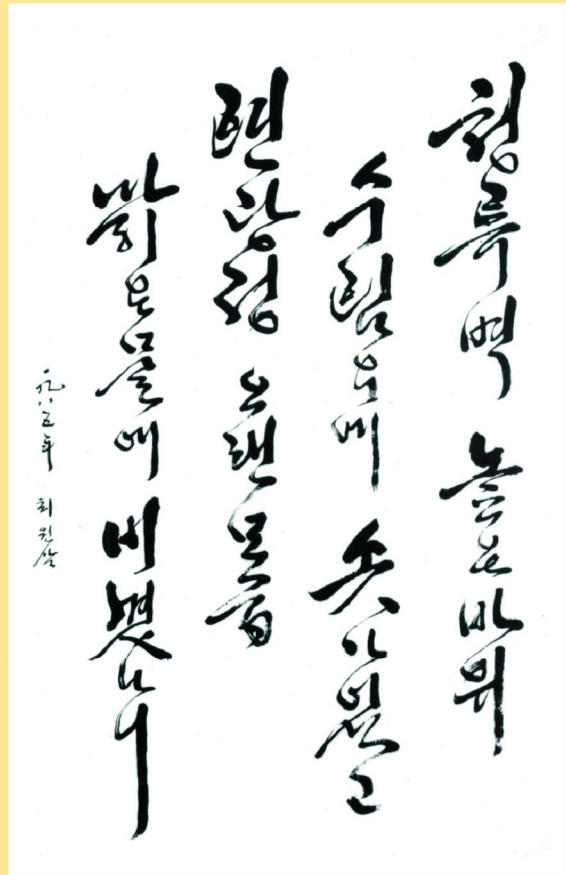 청류벽 높은바위
수림우에 솟아있고
련광정 오랜모습
맑은물에
一九八五年 최원삼